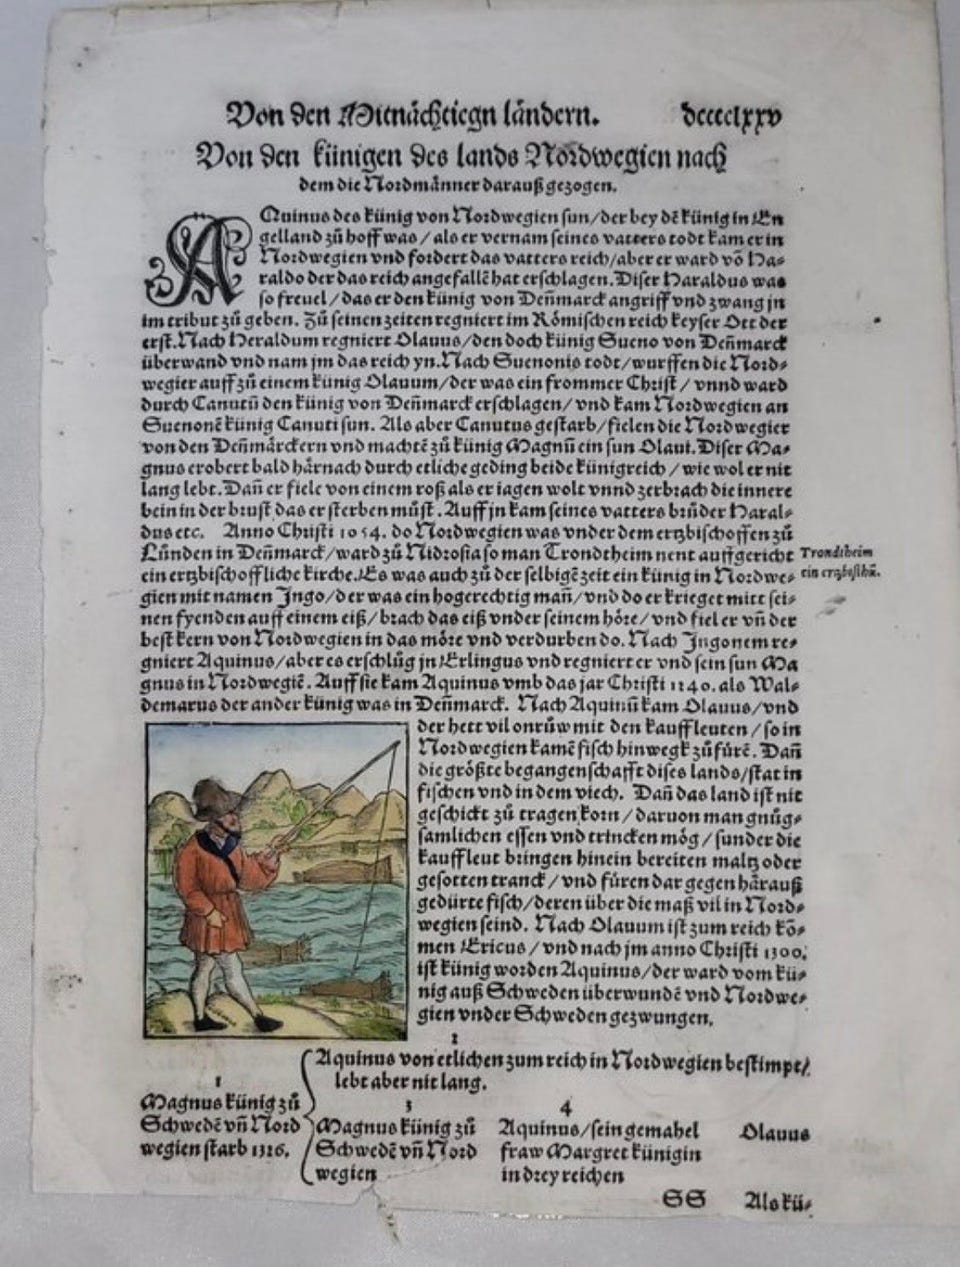 Von den Mitnächtiegn ländern. dccclxxv
Von den künigen des lands Nordwegien nach
dem die Nordmänner darauß gezogen.
AQuinus des künig von Nordwegien sun/der bey dē künig in En
gelland zů hoff was/als er vernam seines vatters todt kam er in
Nordwegien vnd fordert das vatters reich/aber er ward vō Ha⸗
raldo der das reich angefallē hat erschlagen. Diser Haraldus was
so freuel/das er den künig von Deñmarck angriff vnd zwang jn
im tribut zů geben. Zů seinen zeiten regniert im Römischen reich keyser Ott der
erst. Nach Heraldum regniert Olauus/den doch künig Sueno von Deñmarck
überwand vnd nam jm das reich yn. Nach Suenonis todt/wurffen die Nord⸗
wegier auff zů einem künig Olauum/der was ein frommer Christ/vnnd ward
durch Canutū den künig von Deñmarck erschlagen/vnd kam Nordwegien an
Suenonē künig Canuti sun. Als aber Canutus gestarb/fielen die Nordwegier
von den Deñmärckern vnd machtē zů künig Magnū ein sun Olaui. Diser Ma⸗
gnus erobert bald härnach durch etliche geding beide künigreich/wie wol er nit
lang lebt. Dañ er fiele von einem roß als er iagen wolt vnnd zerbrach die innere
bein in der brust das er sterben můst. Auff jn kam seines vatters brůder Haral⸗
dus etc. Anno Christi 1054. do Nordwegien was vnder dem ertzbischoffen zů
Lünden in Deñmarck/ward zů Nidrosia so man Trondtheim nent auffgericht
Trondtheim
ein ertzbisthū.
ein ertzbischoffliche kirche. Es was auch zů der selbigē zeit ein künig in Nordwe⸗
gien mit namen Jngo/der was ein hogerechtig mañ/vnd do er krieget mitt sei⸗
nen fyenden auff einem eiß/brach das eiß vnder seinem höre/vnd fiel er vñ der
best kern von Nordwegien in das möre vnd verdurben do. Nach Jngonem re⸗
gniert Aquinus/aber es erschlůg jn Erlingus vnd regniert er vnd sein sun Ma
gnus in Nordwegiē. Auff sie kam Aquinus vmb das jar Christi 1240. als Wal⸗
demarus der ander künig was in Deñmarck. Nach Aquinū kam Olauus/vnd
der hett vil onrůw mit den kauffleuten/so in
Nordwegien kamē fisch hinwegk zů fürē. Dañ
die größte begangenschafft dises lands/stat in
fischen vnd in dem viech. Dañ das land ist nit
geschickt zů tragen korn/daruon man gnůg⸗
samlichen essen vnd trincken mög/sunder die
kauffleut bringen hinein bereiten maltz oder
gesotten tranck/vnd füren dar gegen härauß
gedürte fisch/deren über die maß vil in Nord⸗
wegien seind. Nach Olauum ist zum reich kō⸗
men Ericus/vnd nach jm anno Christi 1300.
ist künig worden Aquinus/der ward vom kü⸗
nig auß Schweden überwundē vnd Nordwe⸗
gien vnder Schweden gezwungen.
2
Aquinus von etlichen zum reich in Nordwegien bestimpt/
lebt aber nit lang.
1
Magnus künig zů
Schwedē vñ Nord
wegien starb 1326.
3
Magnus künig zů
Schwedē vñ Nord
wegien
4
Aquinus/sein gemahel
fraw Margret künigin
in drey reichen
Olauus
SS Als kü⸗